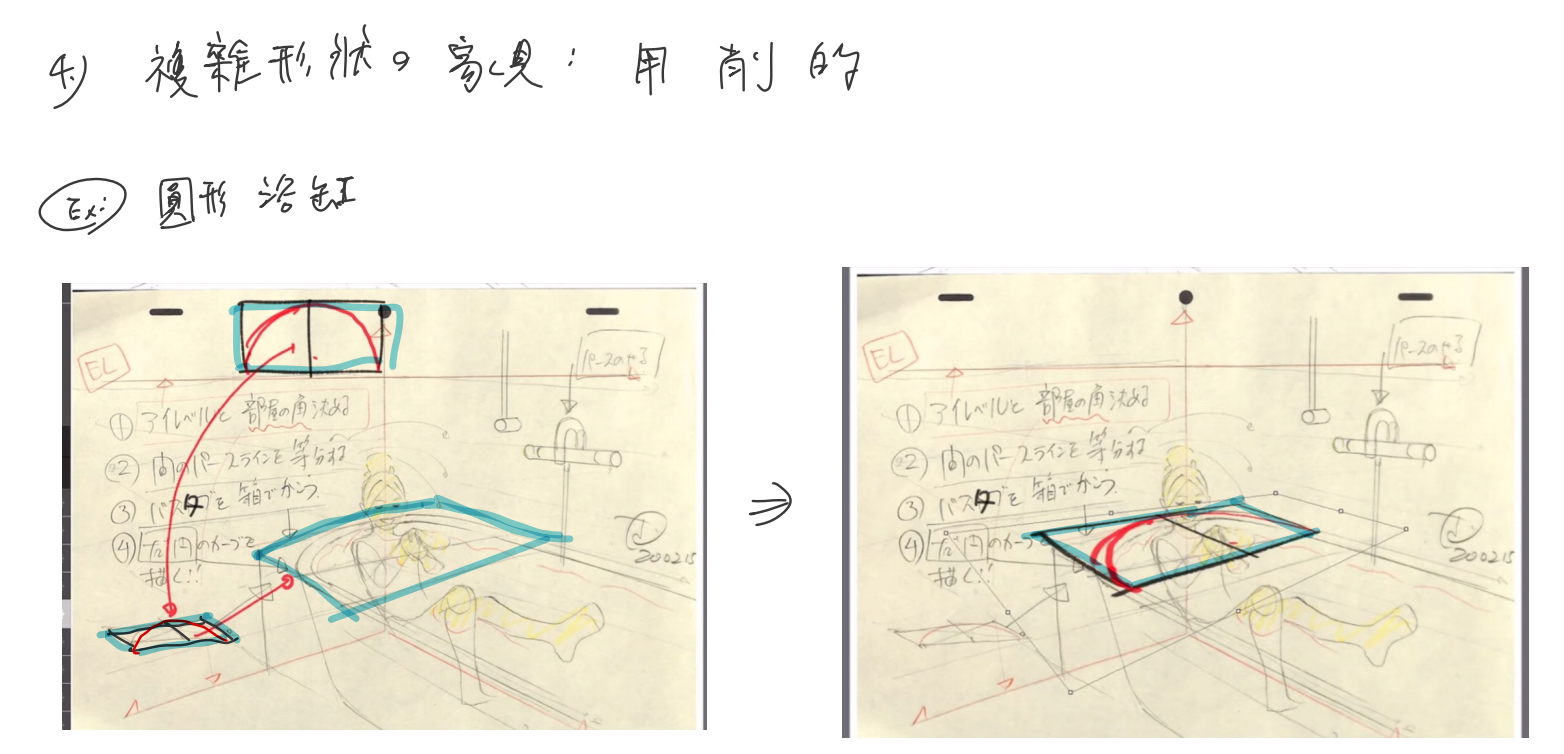 4) 複雜形狀の家具：用削的
Ex: 圓形浴缸
EL
パースのやる
① アイレベルと部屋の角決める
② 間のパースラインを等分する
③ バスタブを箱でかこう
④ だ円のカーブを
描く!!
200215
⇒
EL
パースのやる
① アイレベルと部屋の角決める
② 間のパースラインを等分する
③ バスタブを箱でかこう
④ だ円のカーブを
描く!!
200215